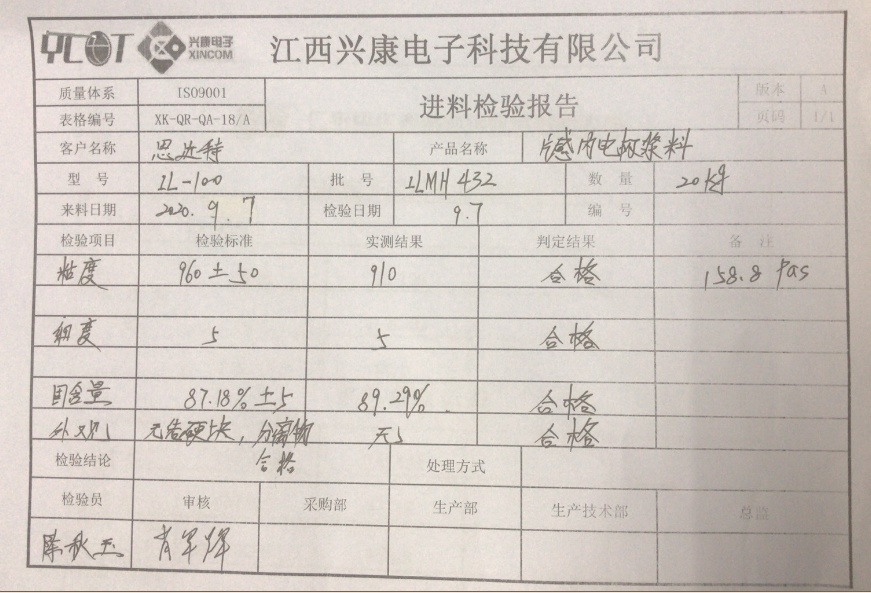 YCOT 兴康电子 XINCOM 江西兴康电子科技有限公司
质量体系 ISO9001 进料检验报告 版本 A
表格编号 XK-QR-QA-18/A 页码 1/1
客户名称 思达特 产品名称 片感内电极浆料
型号 IL-100 批号 ILMH432 数量 20kg
来料日期 2020.9.7 检验日期 9.7 编号
检验项目 检验标准 实测结果 判定结果 备注
粘度 960±50 910 合格 158.8 Pas
细度 5 5 合格
固含量 87.18%±5 89.29% 合格
外观 无结硬块，分离物 无 合格
检验结论 合格 处理方式
检验员 审核 采购部 生产部 生产技术部 总监
陈秋玉 肖军辉